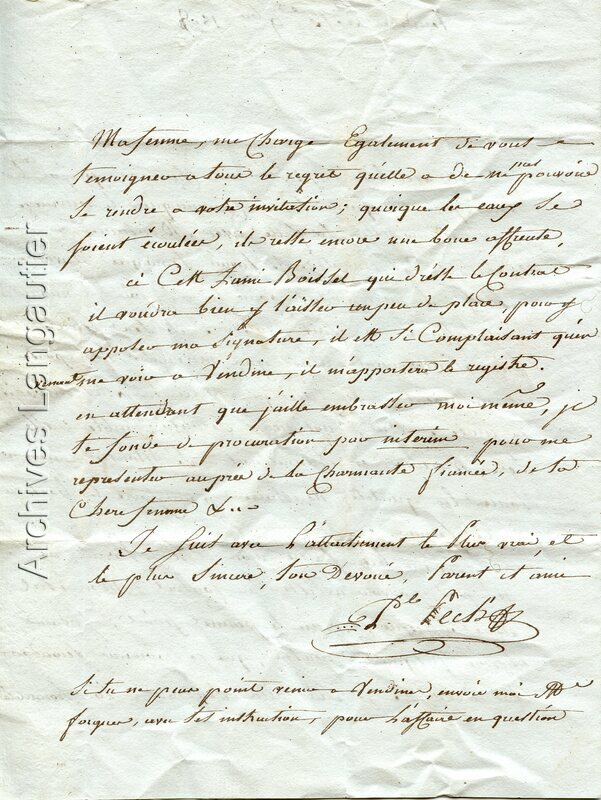 Ma femme, me Charge Egalement de vous
temoigner a tous le regret qu'elle a de ne pas pouvoir
se rendre a votre invitation; quoique les eaux se
soient écoulées, il reste encore une boue affreuse,
ci Cest l'ami Boissel qui dresse le Contrat
il voudra bien y laisser un peu de place, pour y
apposer ma signature, il est si Complaisant qu'en
venant me voir a Vendine, il m'apportera le registre.
en attendant que j'aille embrasser moi même, je
te fonde de procuration par interim pour me
representer auprés de la Charmante fiancée, de ta
Chere femme &..
Je suis avec l'attachement le Plus vrai, et
le plus Sincere, ton Devoué, Parent et ami
Pech
Si tu ne peux point venir a Vendine, envoie moi
forques, avec tes instruction, pour l'affaire en question
Archives Lengautier